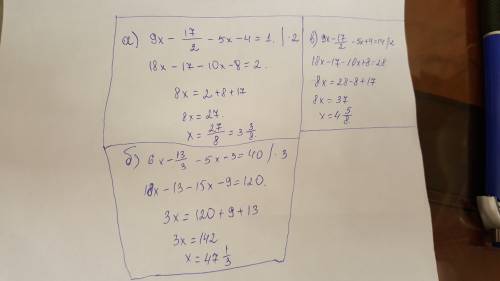 а) 9x - 17/2 - 5x - 4 = 1. | ·2
18x - 17 - 10x - 8 = 2.
8x = 2 + 8 + 17
8x = 27.
x = 27/8 = 3 3/8
б) 6x - 13/3 - 5x - 3 = 40 / · 3
18x - 13 - 15x - 9 = 120.
3x = 120 + 9 + 13
3x = 142
x = 47 1/3
в) 9x - 17/2 - 5x + 4 = 14 | ·2
18x - 17 - 10x + 8 = 28
8x = 28 - 8 + 17
8x = 37
x = 4 5/8